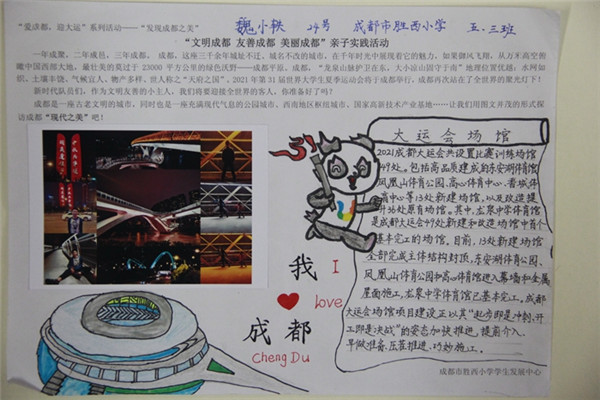 “爱成都，迎大运”系列活动——“发现成都之美”
魏小轶 24号 成都市胜西小学 五.三班
“文明成都 友善成都 美丽成都”亲子实践活动
一年成聚，二年成邑，三年成都。成都，这座三千余年城址不迁，城名不改的城市，在千年时光中展现着它的魅力。如果御风飞翔，从万米高空俯
瞰中国西部大地，最壮美的莫过于 23000 平方公里的绿色沃野——成都平原。成都，“龙泉山脉护卫在东，大小凉山固守于南”地理位置优越；水网如
织，土壤丰饶，气候宜人、物产多样，世人称之“天府之国”。2021 年第 31 届世界大学生夏季运动会将于成都举行，成都再次站在了全世界的聚光灯下！
新时代队员们，作为文明友善的小主人，我们将要迎接全世界的客人，你准备好了吗？
成都是一座古老文明的城市，同时也是一座充满现代气息的公园城市，西南地区枢纽城市，国家高新技术产业基地……让我们用图文并茂的形式探
访成都“现代之美”吧！
大运会场馆
2021成都大运会共设置比赛训练场馆
49处。包括高品质建成的东安湖体育馆
凤凰山体育公园、高心体育中心、香城体
育中心等13处新建场馆，以及改造提
升36处原有场馆。其中，龙泉中学体育馆
是成都大运会49处新建和改造场馆中首个
基本完工的场馆。目前，13处新建场馆
全部完成主体结构封顶，东安湖体育公园、
凤凰山体育公园和高心体育馆进入幕墙和金属
屋面施工，龙泉中学体育馆已基本完工，成都
大运会场馆项目建设正以其“起步即是冲刺、开
工即是决战”的姿态加快推进，提前介入、
早做准备、压茬推进、巧妙施工。
我 I
love
成都
Cheng Du
成都市胜西小学学生发展中心